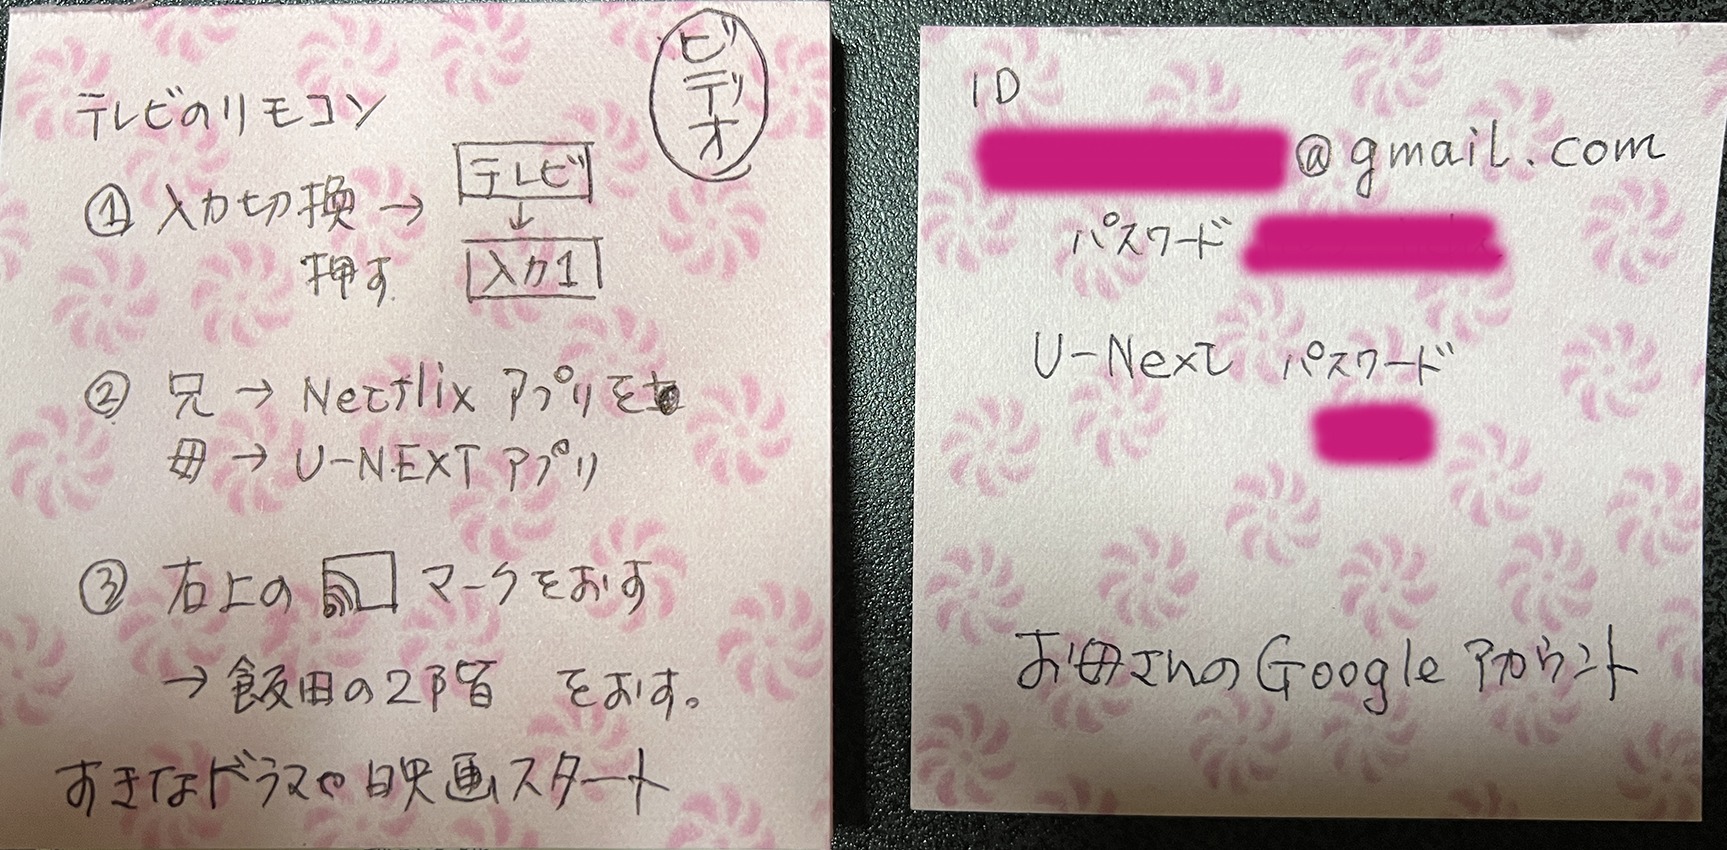 ビデオ
テレビのリモコン
① 入力切換 → テレビ
押す ↓
入力1
② 兄 → Netflix アプリを
母 → U-NEXT アプリ
③ 右上の マークをおす
→ 飯田の2階 をおす。
すきなドラマや映画スタート
ID
@gmail.com
パスワード
U-Next パスワード
お母さんのGoogle アカウント